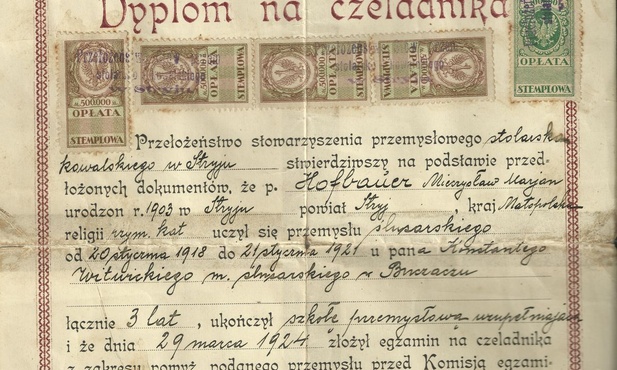 Dyplom na czeladnika
500.000
OPŁATA
STEMPLOWA
OPŁATA
STEMPLOWA
500.000
OPŁATA
STEMPLOWA
OPŁATA
STEMPLOWA
500.000
OPŁATA
STEMPLOWA
Przełożeństwo stowarzyszenia przemysłowego stolarsko
kowalskiego w Stryju stwierdziwszy na podstawie przed-
łożonych dokumentów, że p. Hofbauer Mieczysław Marjan
urodzon r. 1903 w Stryju powiat Stryj kraj Małopolska
religii rzym. kat uczył się przemysłu ślusarskiego
od 20 stycznia 1918 do 21 stycznia 1921 u pana Konstantego
Witwickiego m. ślusarskiego w Buczaczu
łącznie 3 lat, ukończył szkołę przemysłową uzupełniającą
i że dnia 29 marca 1924 złożył egzamin na czeladnika
z zakresu pomyż. podanego przemysłu przed Komisją egzami-